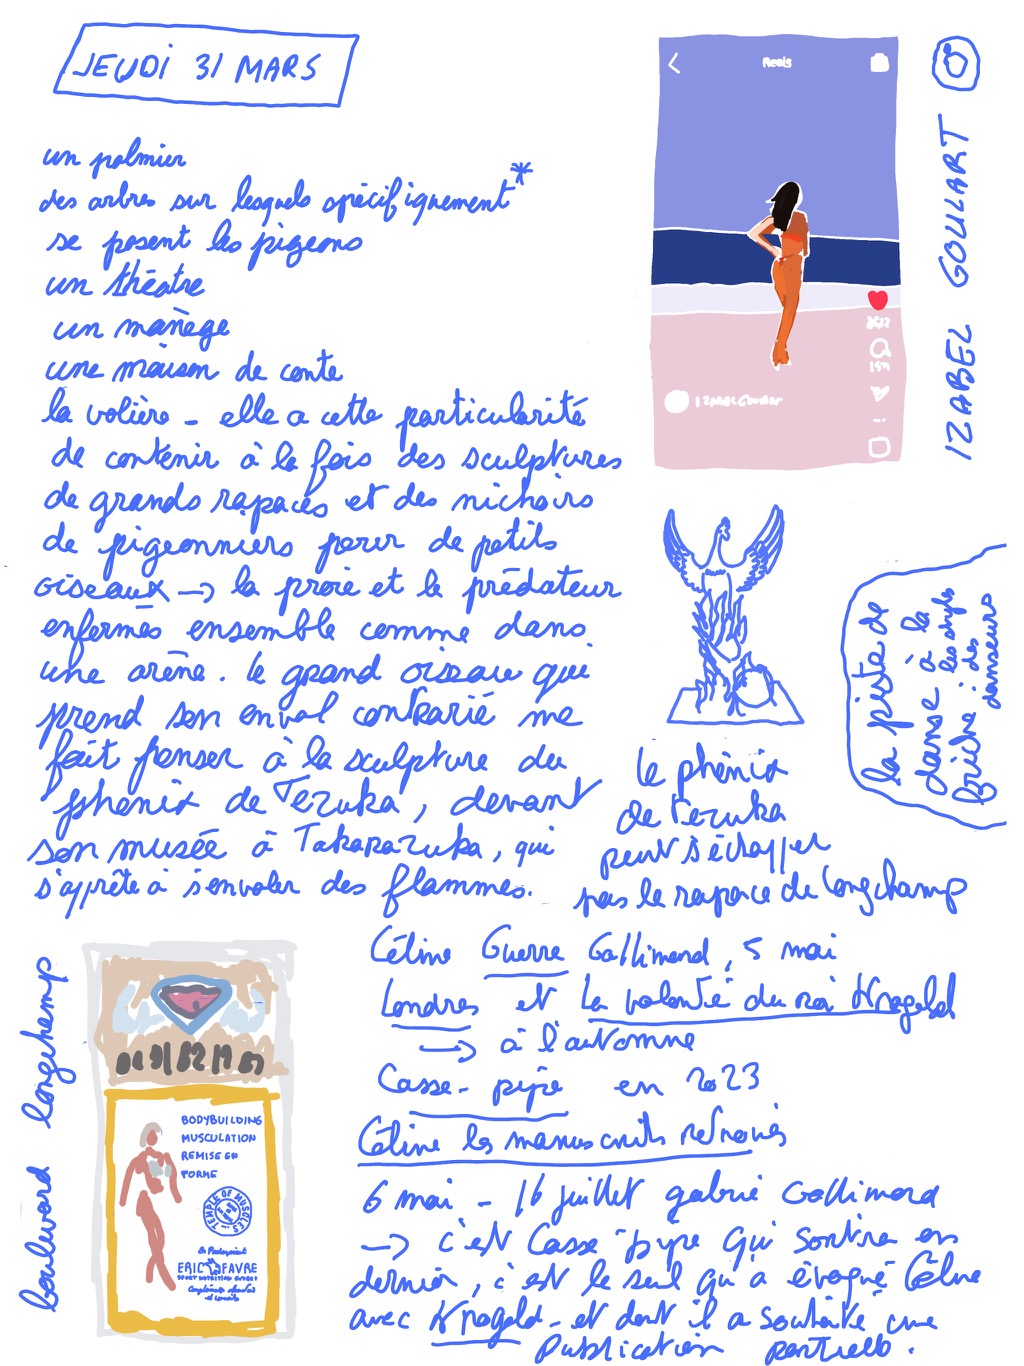 JEUDI 31 MARS
un palmier
des arbres sur lesquels spécifiquement*
se posent les pigeons
un théatre
un manège
une maison de conte
la volière - elle a cette particularité
de contenir à la fois des sculptures
de grands rapaces et des nichoirs
de pigeonniers pour de petits
oiseaux → la proie et le prédateur
enfermés ensemble comme dans
une arène. le grand oiseau qui
prend son envol contrarié me
fait penser à la sculpture du
phénix de Tezuka, devant
son musée à Takarazuka, qui
s'apprête à s'envoler des flammes.
Reels
IZABEL GOULART
le phénix
de Tezuka
peut s'échapper
pas le rapace de Longchamp
la piste de
danse à la
friche :
danseurs
Céline Guerre Gallimard, 5 mai
Londres et La volonté du roi Krogold
→ à l'automne
Casse-pipe en 2023
Céline les manuscrits retrouvés
6 mai - 16 juillet galerie Gallimard
→ c'est Casse-pipe qui sortira en
dernier, c'est le seul qu'a évoqué Céline
avec Krogold - et dont il a souhaité une
publication partielle.
boulevard longchamp
BODYBUILDING
MUSCULATION
REMISE EN
FORME
TEMPLE OF MUSCLES
ERIC FAVRE